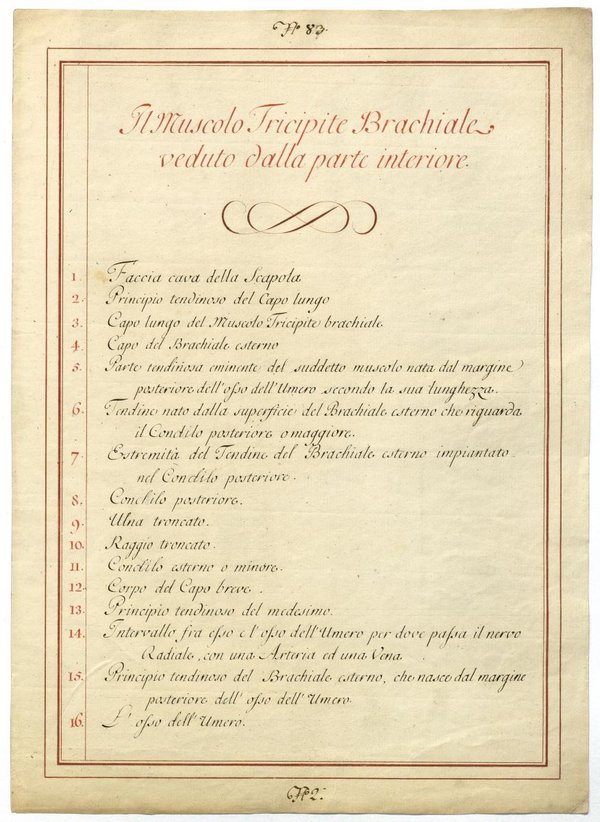 N° 83.
Il Muscolo Tricipite Brachiale,
veduto dalla parte interiore.
1. Faccia cava della Scapola
2. Principio tendinoso del Capo lungo
3. Capo lungo del Muscolo Tricipite brachiale
4. Capo del Brachiale esterno
5. Parte tendinosa eminente del suddetto muscolo nata dal margine
posteriore dell'osso dell'Umero secondo la sua lunghezza.
6. Tendine nato dalla superficie del Brachiale esterno che riguarda
il Condilo posteriore o maggiore.
7. Estremità del Tendine del Brachiale esterno impiantato
nel Condilo posteriore.
8. Condilo posteriore.
9. Ulna troncato.
10. Raggio troncato.
11. Condilo esterno o minore.
12. Corpo del Capo breve.
13. Principio tendinoso del medesimo.
14. Intervallo fra esso e l'osso dell'Umero per dove passa il nervo
Radiale, con una Arteria ed una Vena
15. Principio tendinoso del Brachiale esterno, che nasce dal margine
posteriore dell'osso dell'Umero.
16. L'osso dell'Umero.
N° 2.